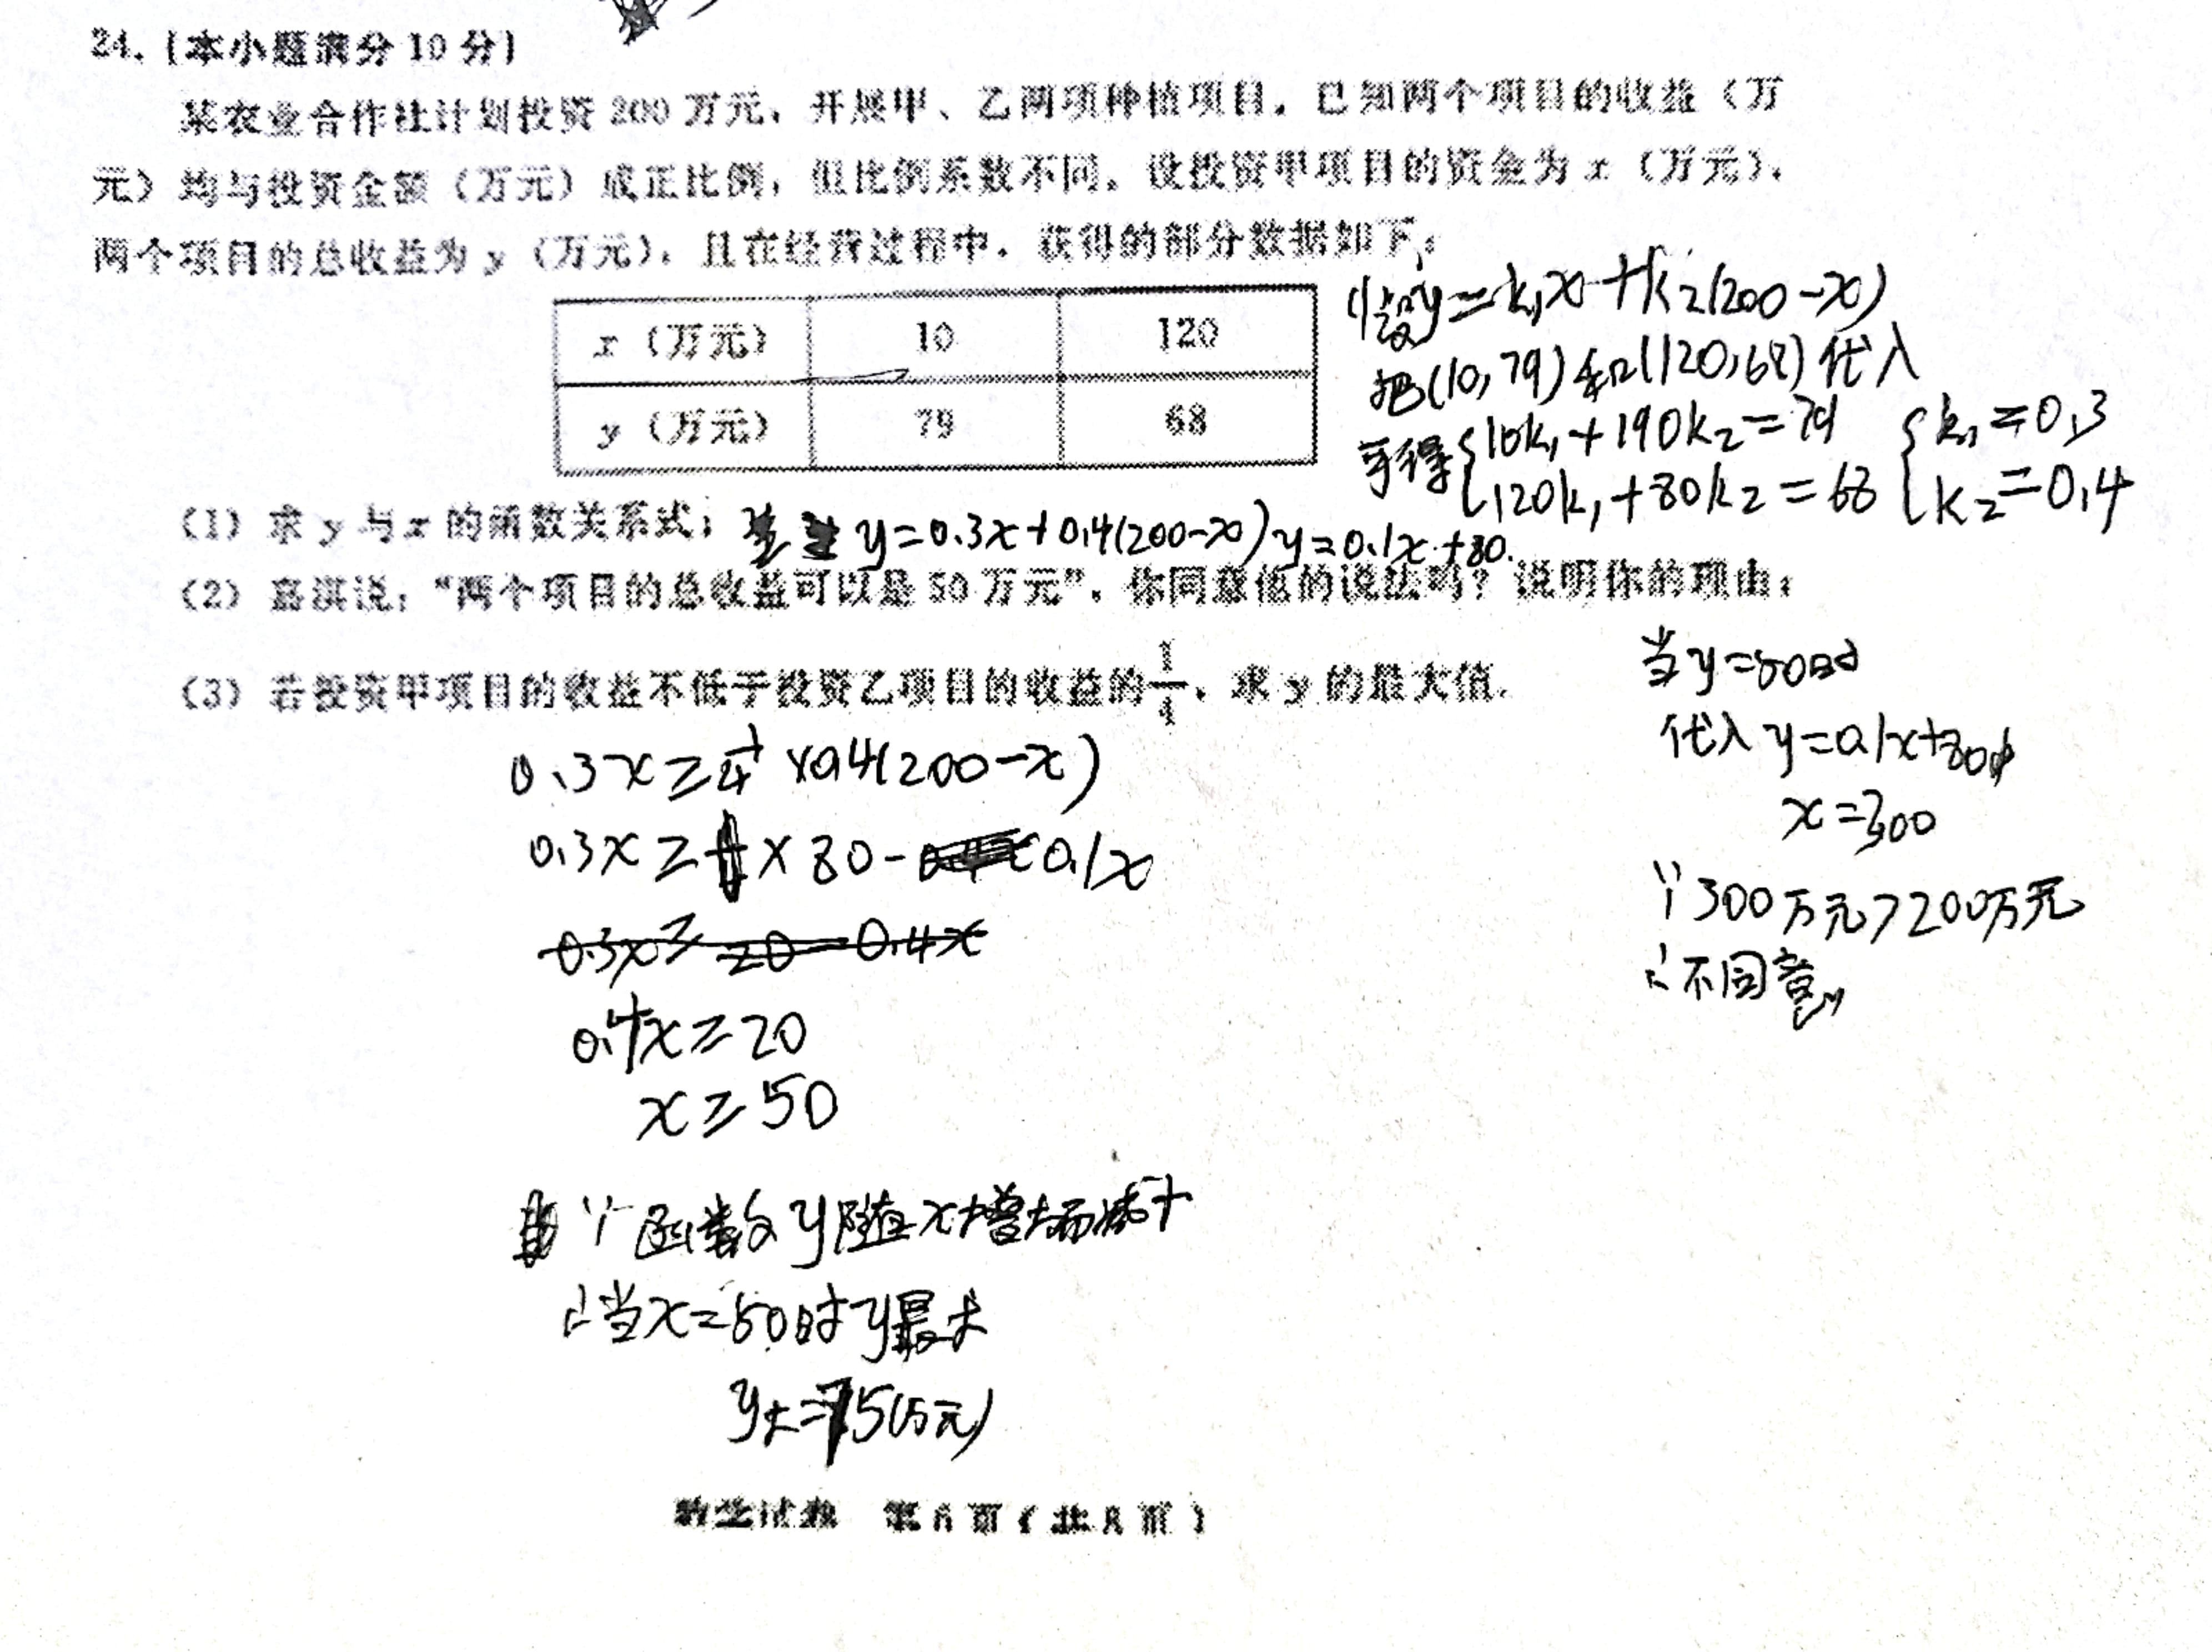 24. (本小题满分 10 分)
某农业合作社计划投资 200 万元，开展甲、乙两项种植项目。已知两个项目的收益（万
元）均与投资金额（万元）成正比例，但比例系数不同。设投资甲项目的资金为 x（万元），
两个项目的总收益为 y（万元），且在经营过程中，获得的部分数据如下：
x（万元） 10 120
y（万元） 79 68
(1)设y=k₁x+k₂(200-x)
把(10,79)和(120,68)代入
可得{10k₁+190k₂=79 {k₁=0.3
120k₁+80k₂=68 k₂=0.4
（1）求 y 与 x 的函数关系式；
y=0.3x+0.4(200-x) y=0.1x+80.
（2）嘉淇说：“两个项目的总收益可以是 50 万元”，你同意他的说法吗？说明你的理由；
当y=50时
代入y=0.1x+80中
x=300
∵300万元>200万元
∴不同意
（3）若投资甲项目的收益不低于投资乙项目的收益的1/4，求 y 的最大值.
0.3x≥1/4×0.4(200-x)
0.3x≥ ×80-0.1x
0.3x≥20-0.4x
0.4x≥20
x≥50
∵函数y随x增大而减小
∴当x=50时y最大
y大=75(万元)
数学试卷 第 6 页（共 8 页）